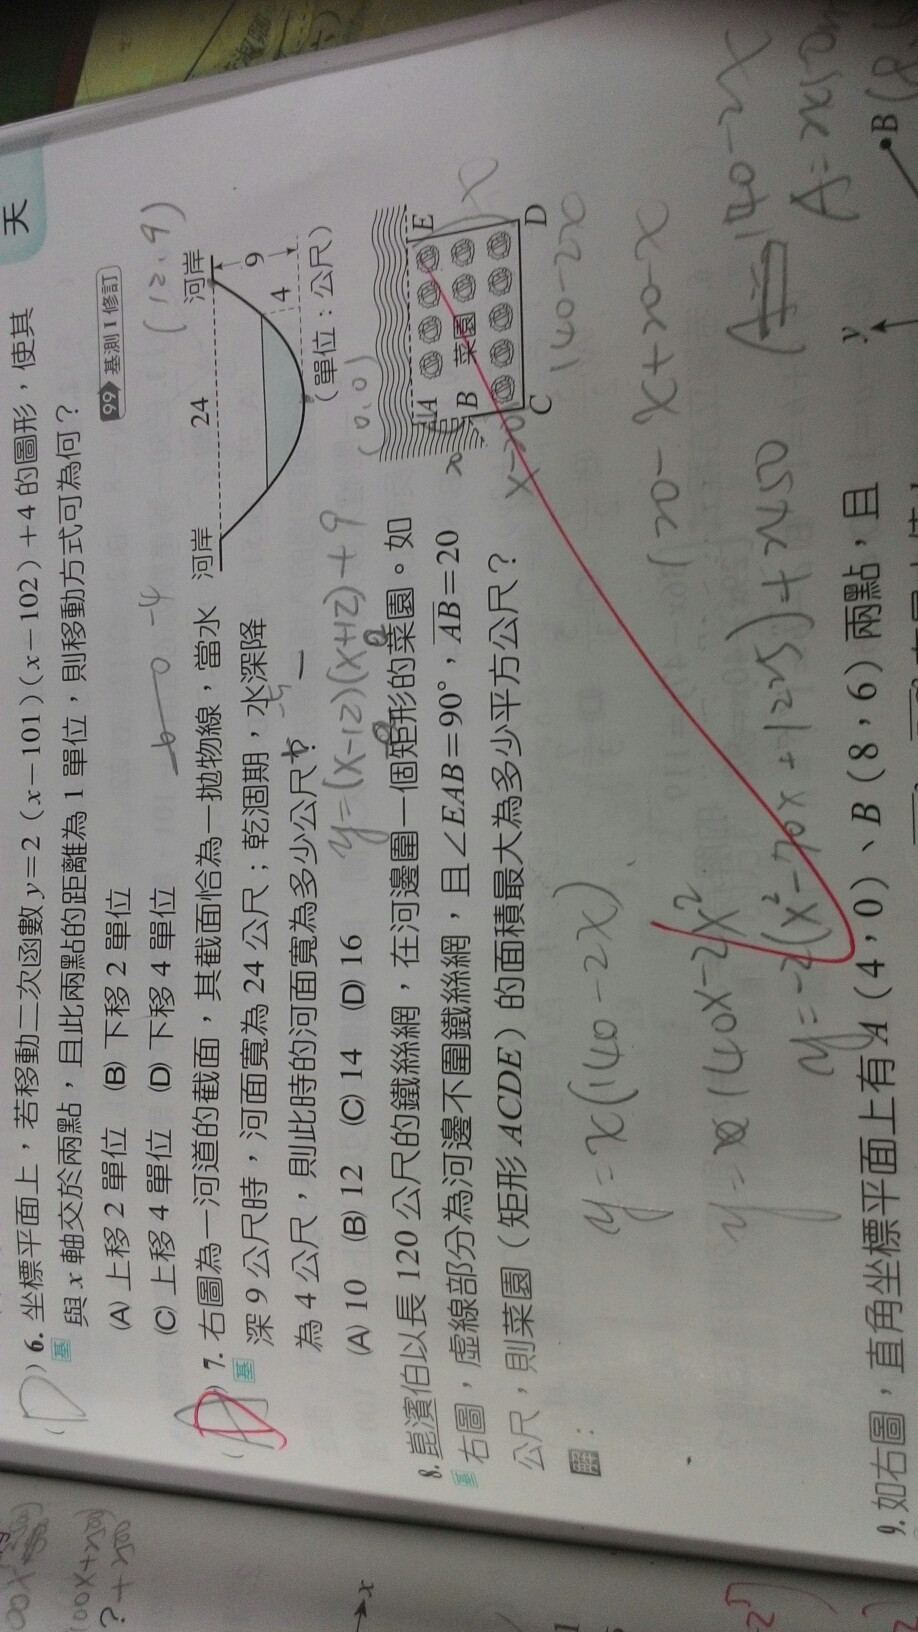 天
(D) 6. 坐標平面上，若移動二次函數 y=2（x－101）（x－102）＋4 的圖形，使其
基 與 x 軸交於兩點，且此兩點的距離為 1 單位，則移動方式可為何？
99 基測 I 修訂
(A) 上移 2 單位 (B) 下移 2 單位
(C) 上移 4 單位 (D) 下移 4 單位
(12,9)
7. 右圖為一河道的截面，其截面恰為一拋物線，當水
基 深 9 公尺時，河面寬為 24 公尺；乾涸期，水深降
為 4 公尺，則此時的河面寬為多少公尺？
(A) 10 (B) 12 (C) 14 (D) 16
河岸
24
河岸
9
4
（單位：公尺）
(0,0)
y=(x-12)(x+12)+9
8. 崑濱伯以長 120 公尺的鐵絲網，在河邊圍一個矩形的菜園。如
基 右圖，虛線部分為河邊不圍鐵絲網，且∠EAB＝90°，AB＝20
公尺，則菜園（矩形 ACDE）的面積最大為多少平方公尺？
A
E
B
菜園
C
D
x
x-20
140-2x
解：
y=x(140-2x)
120-x+20-x
y=140x-2x²
y=-2(x²-70x+1225)+2450
140-2x
9. 如右圖，直角坐標平面上有 A（4，0）、B（8，6）兩點，且
y
B
x